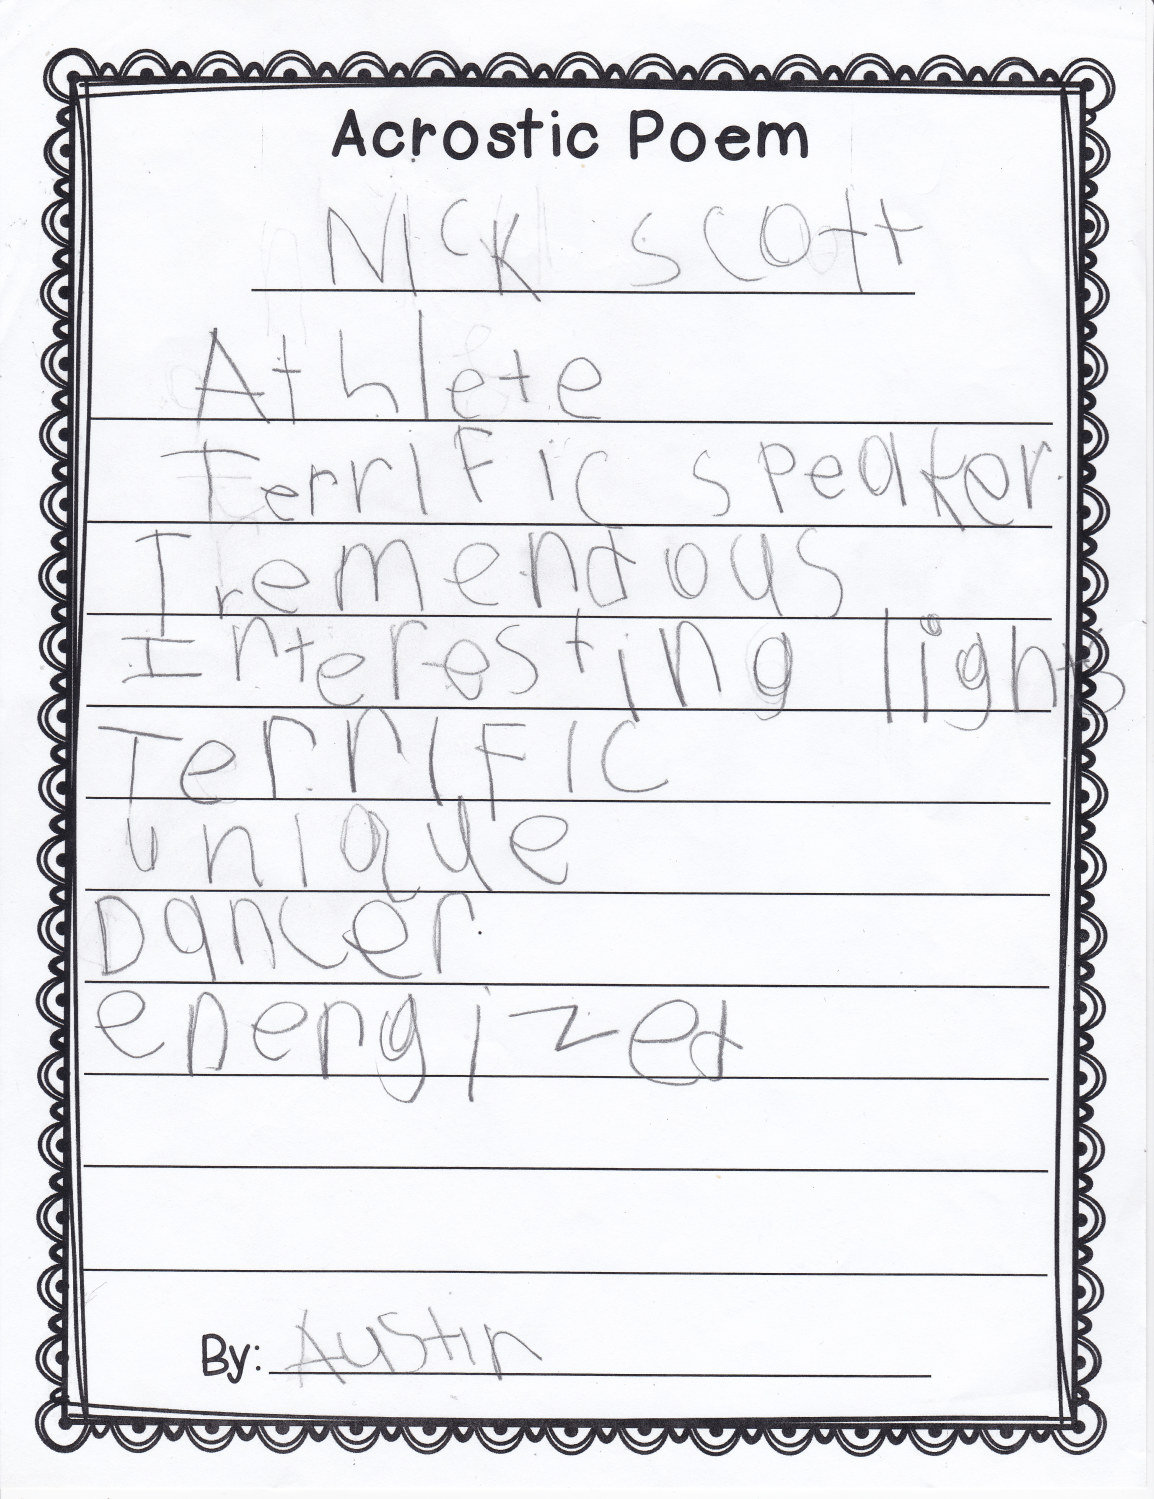 Acrostic Poem
NIcK scott
Athlete
TerrIFic speaker.
Tremendous
Interesting lights
TerrIFIC
unIque
Dancer.
energized
By: Austin